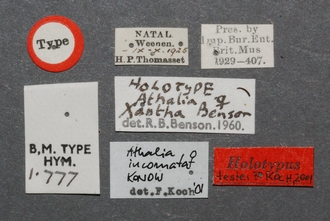 Type
NATAL
Weenen.
-IX-X.1925
H.P. Thomasset
Pres. by
Imp. Bur. Ent.
Brit. Mus
1929-407.
HOLOTYPE
Athalia ♀
Xantha Benson
det. R.B. Benson. 1960.
B.M. TYPE
HYM.
1.777
Athalia ♀
incomnatat
KONOW
det. F. Koch '01
Holotypus
teste: F. Koch, 2001